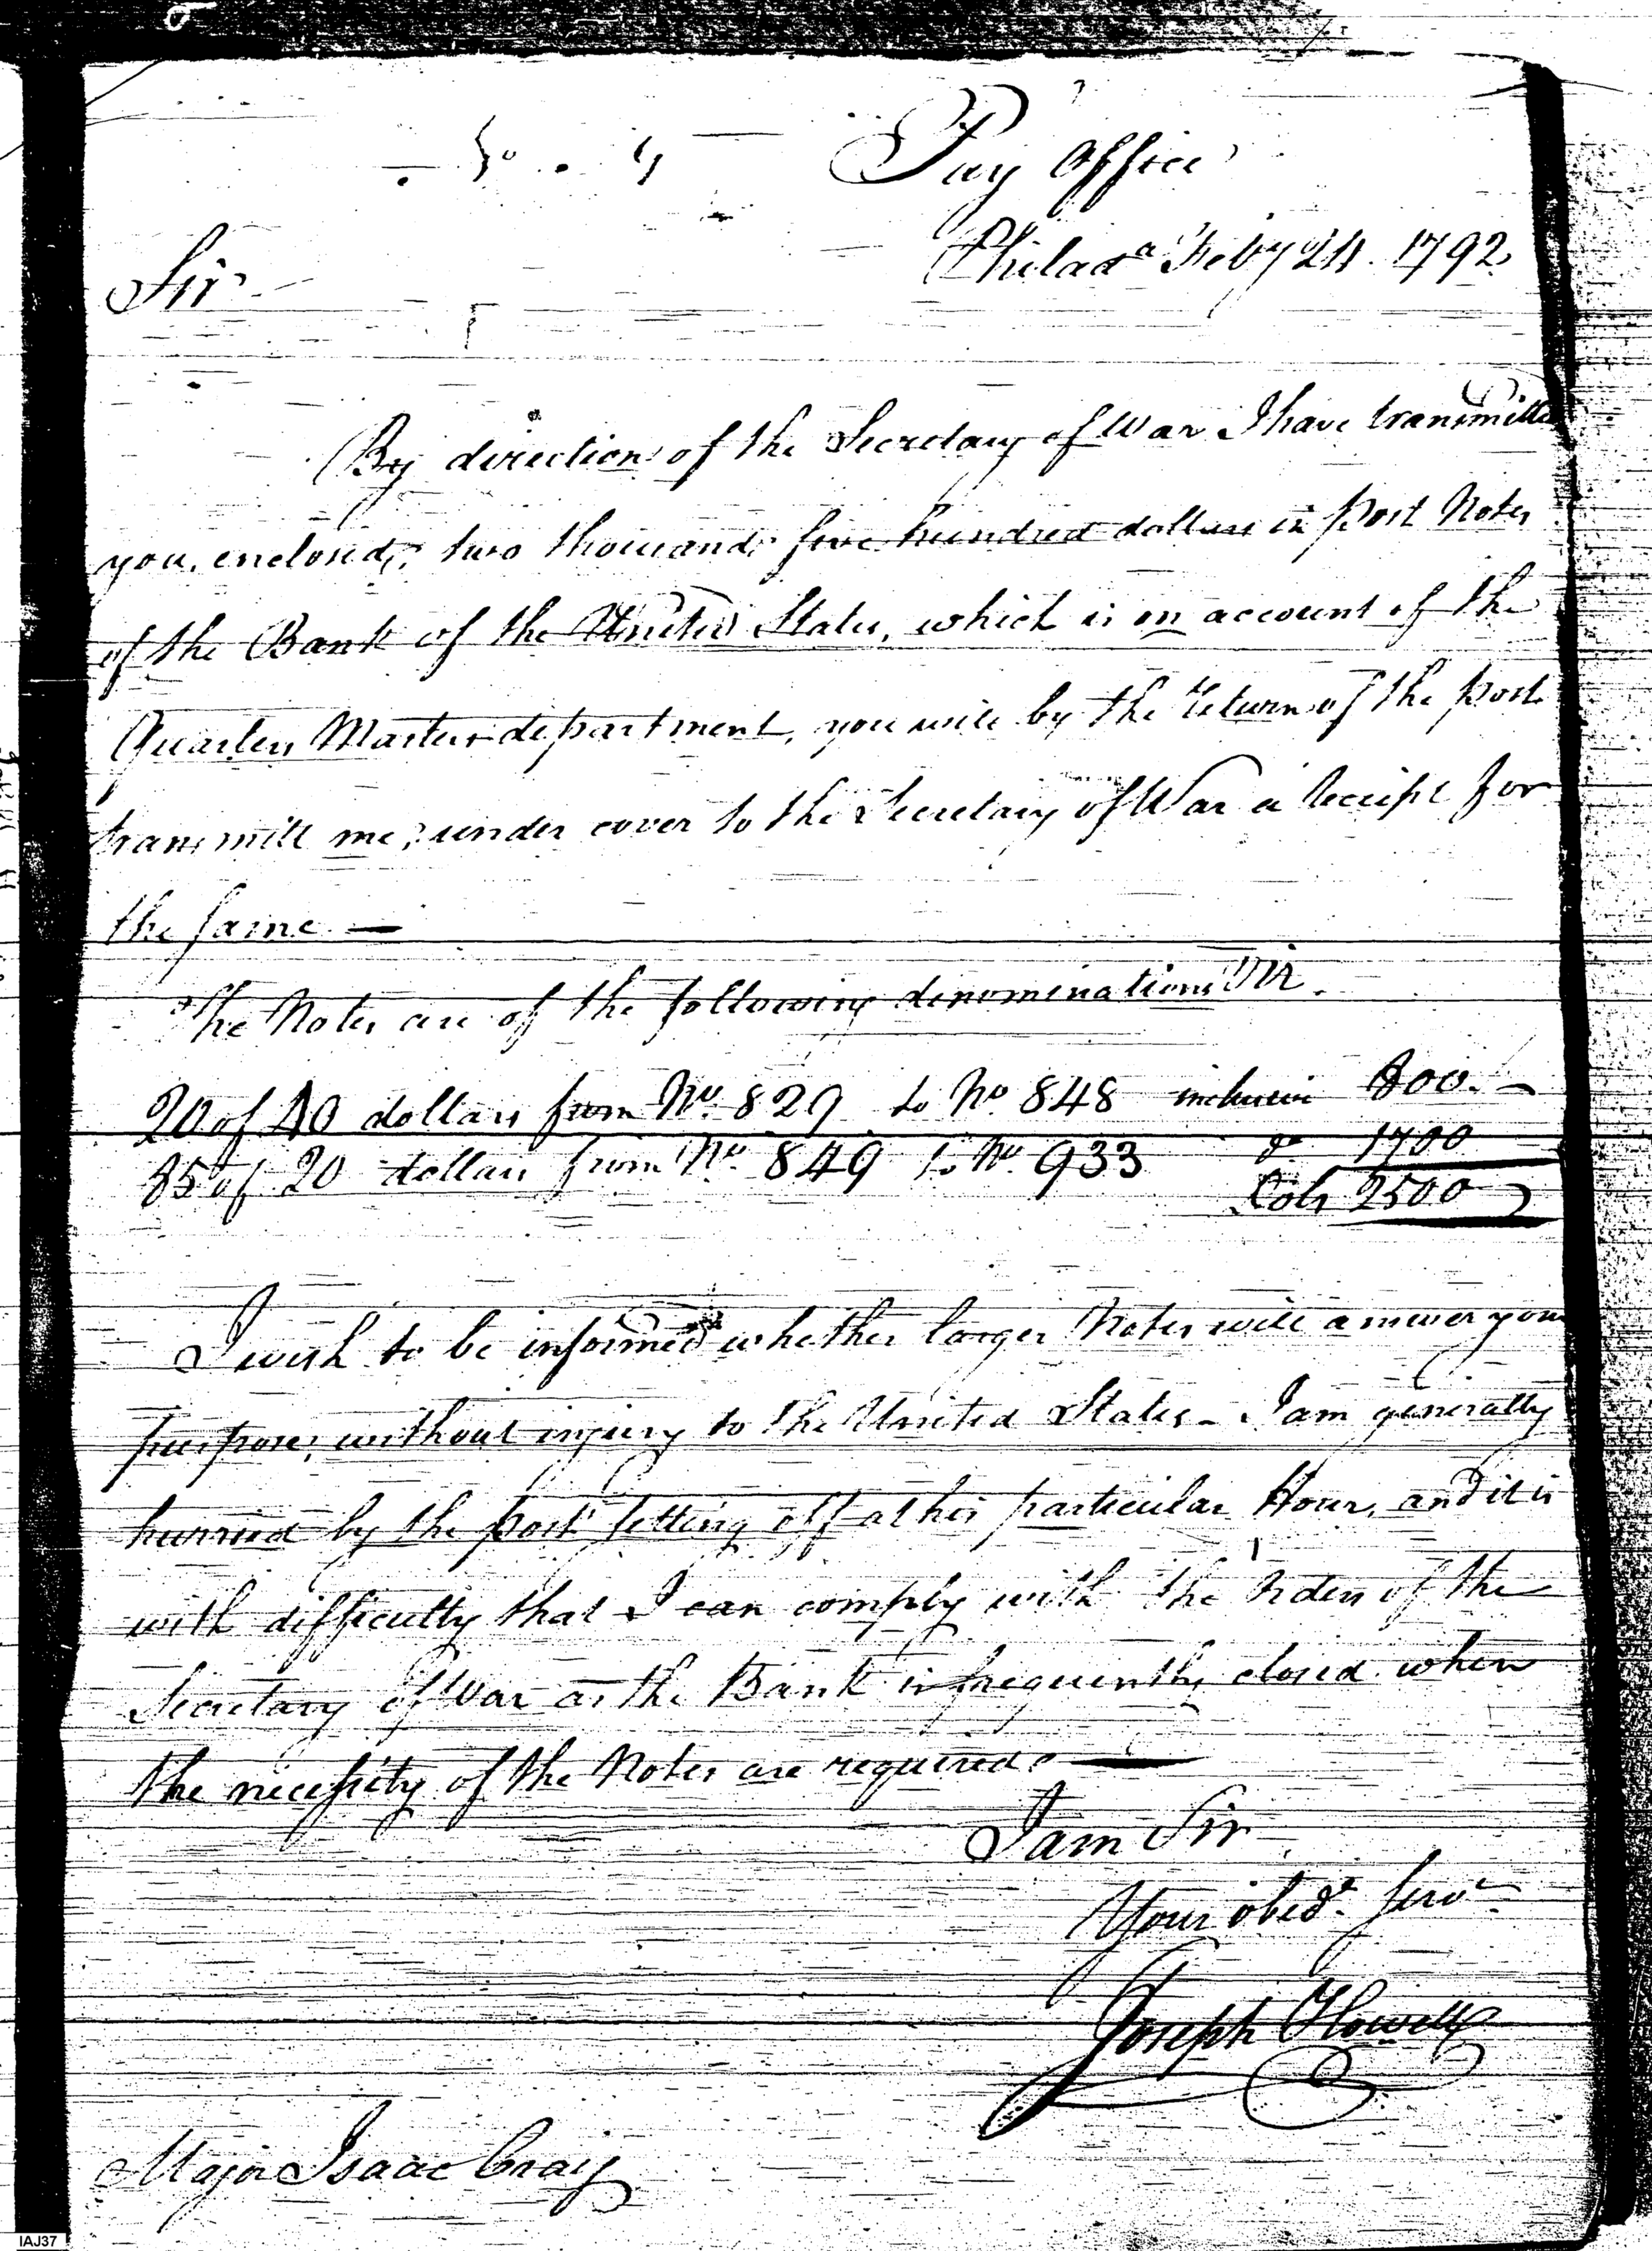 Pay Office
Philada Feby 24. 1792
Sir
By direction of the Secretary of War I have transmitted
you, enclosed, two thousand five hundred dollars in post Notes
of the Bank of the United States, which is on account of the
Quarters Masters department, you will by the return of the post
transmitt me, under cover to the Secretary of War a receipt for
the same —
The Notes are of the following denominations Viz.
20 of 40 dollars from No. 829 to No 848 inclusive 800. —
85 of 20 dollars from No. 849 to No. 933 do 1700
Dolrs 2500
I wish to be informed whether larger Notes will answer your
purpose, without injury to the United States - I am generally
hurried by the post setting off at his particular Hour, and it is
with difficulty that I can comply with the orders of the
Secretary of War as the Bank is frequently closed when
the necessity of the Notes are required. —
I am Sir
Your obedt. servt.
Joseph Howell
Major Isaac Craig
IAJ37